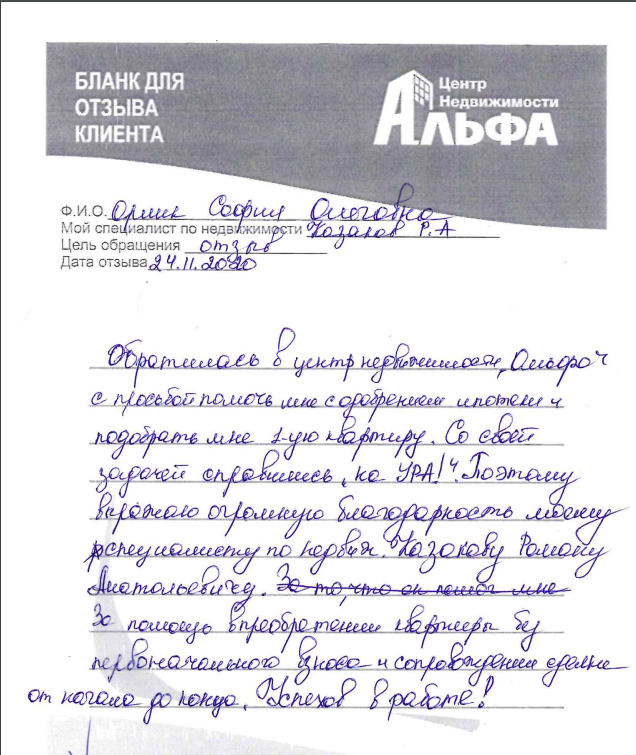 БЛАНК ДЛЯ
ОТЗЫВА
КЛИЕНТА
Центр
Недвижимости
АЛЬФА
Ф.И.О. Орлик София Олеговна
Мой специалист по недвижимости Казаков Р.А
Цель обращения отзыв
Дата отзыва 24.11.2020
Обратилась в центр недвижимости „Альфа“
с просьбой помочь мне с одобрением ипотеки и
подобрать мне 1-ую квартиру. Со своей
задачей справились „на УРА!“. Поэтому
выражаю огромную благодарность моему
специалисту по недвиж. Казакову Роману
Анатольевичу. За то, что он помог мне
За помощь в преобретении квартиры без
первоначального взноса и сопровождении сделки
от начала до конца. Успехов в работе!